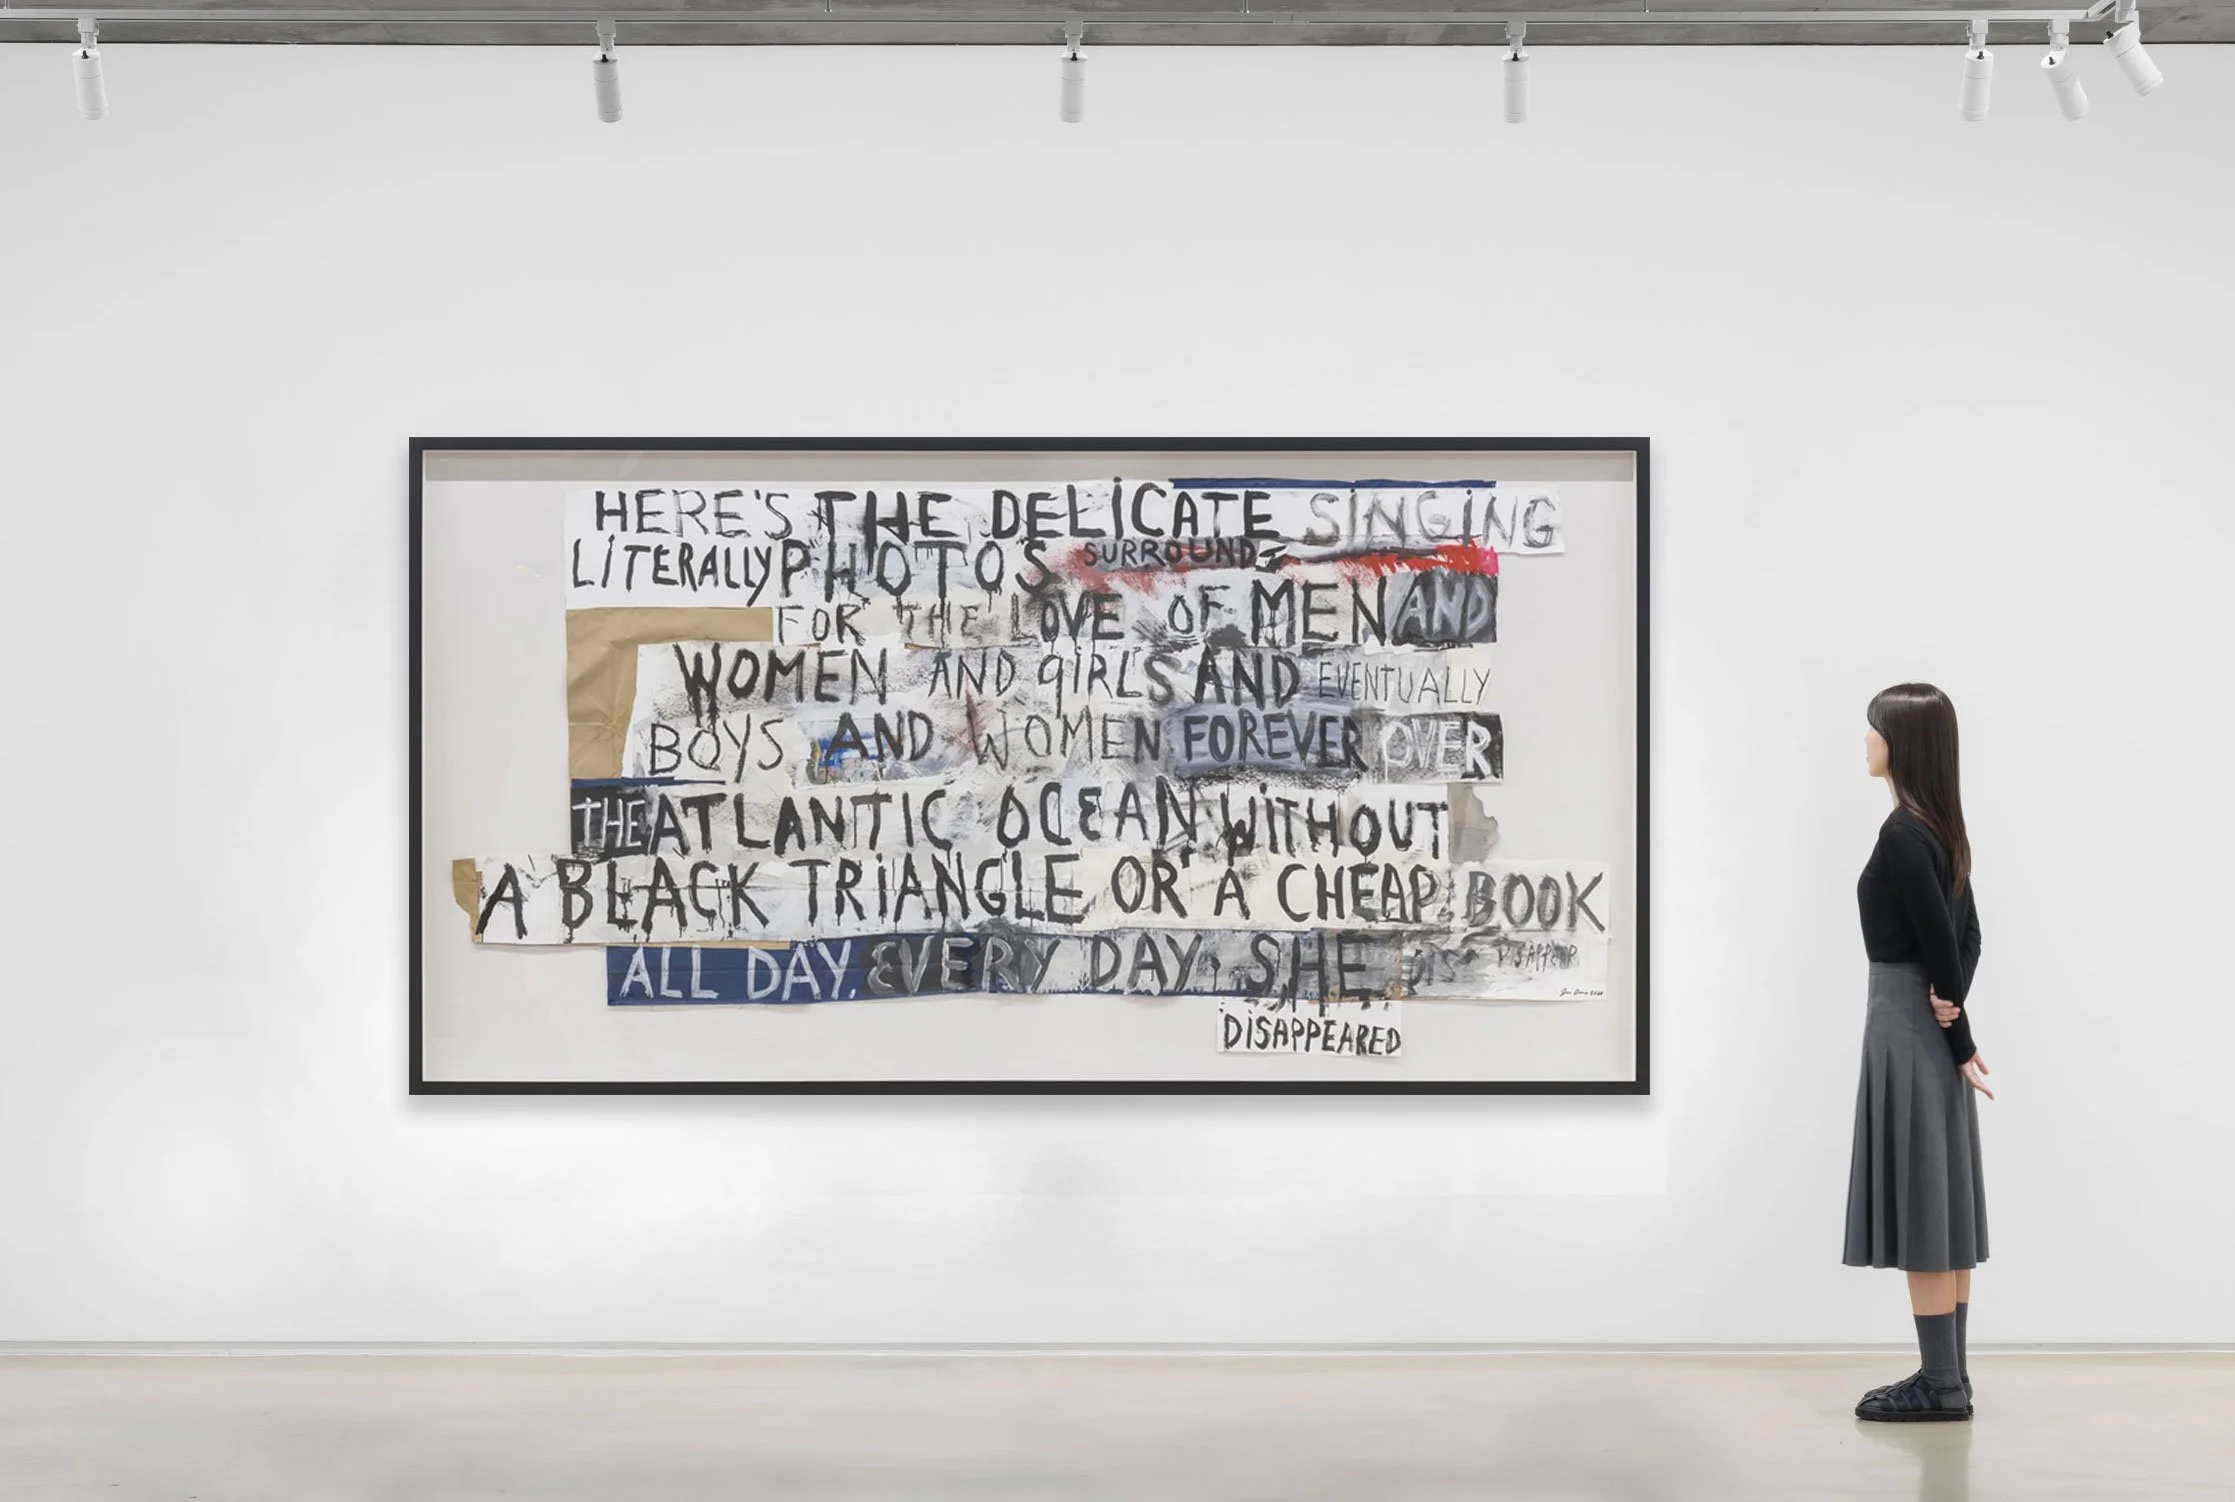 HERE'S THE DELICATE SINGING
LITERALLY PHOTOS SURROUND
FOR THE LOVE OF MEN AND
WOMEN AND GIRLS AND EVENTUALLY
BOYS AND WOMEN FOREVER OVER
THE ATLANTIC OCEAN WITHOUT
A BLACK TRIANGLE OR A CHEAP BOOK
ALL DAY, EVERY DAY, SHE DISAPPEAR
DISAPPEARED